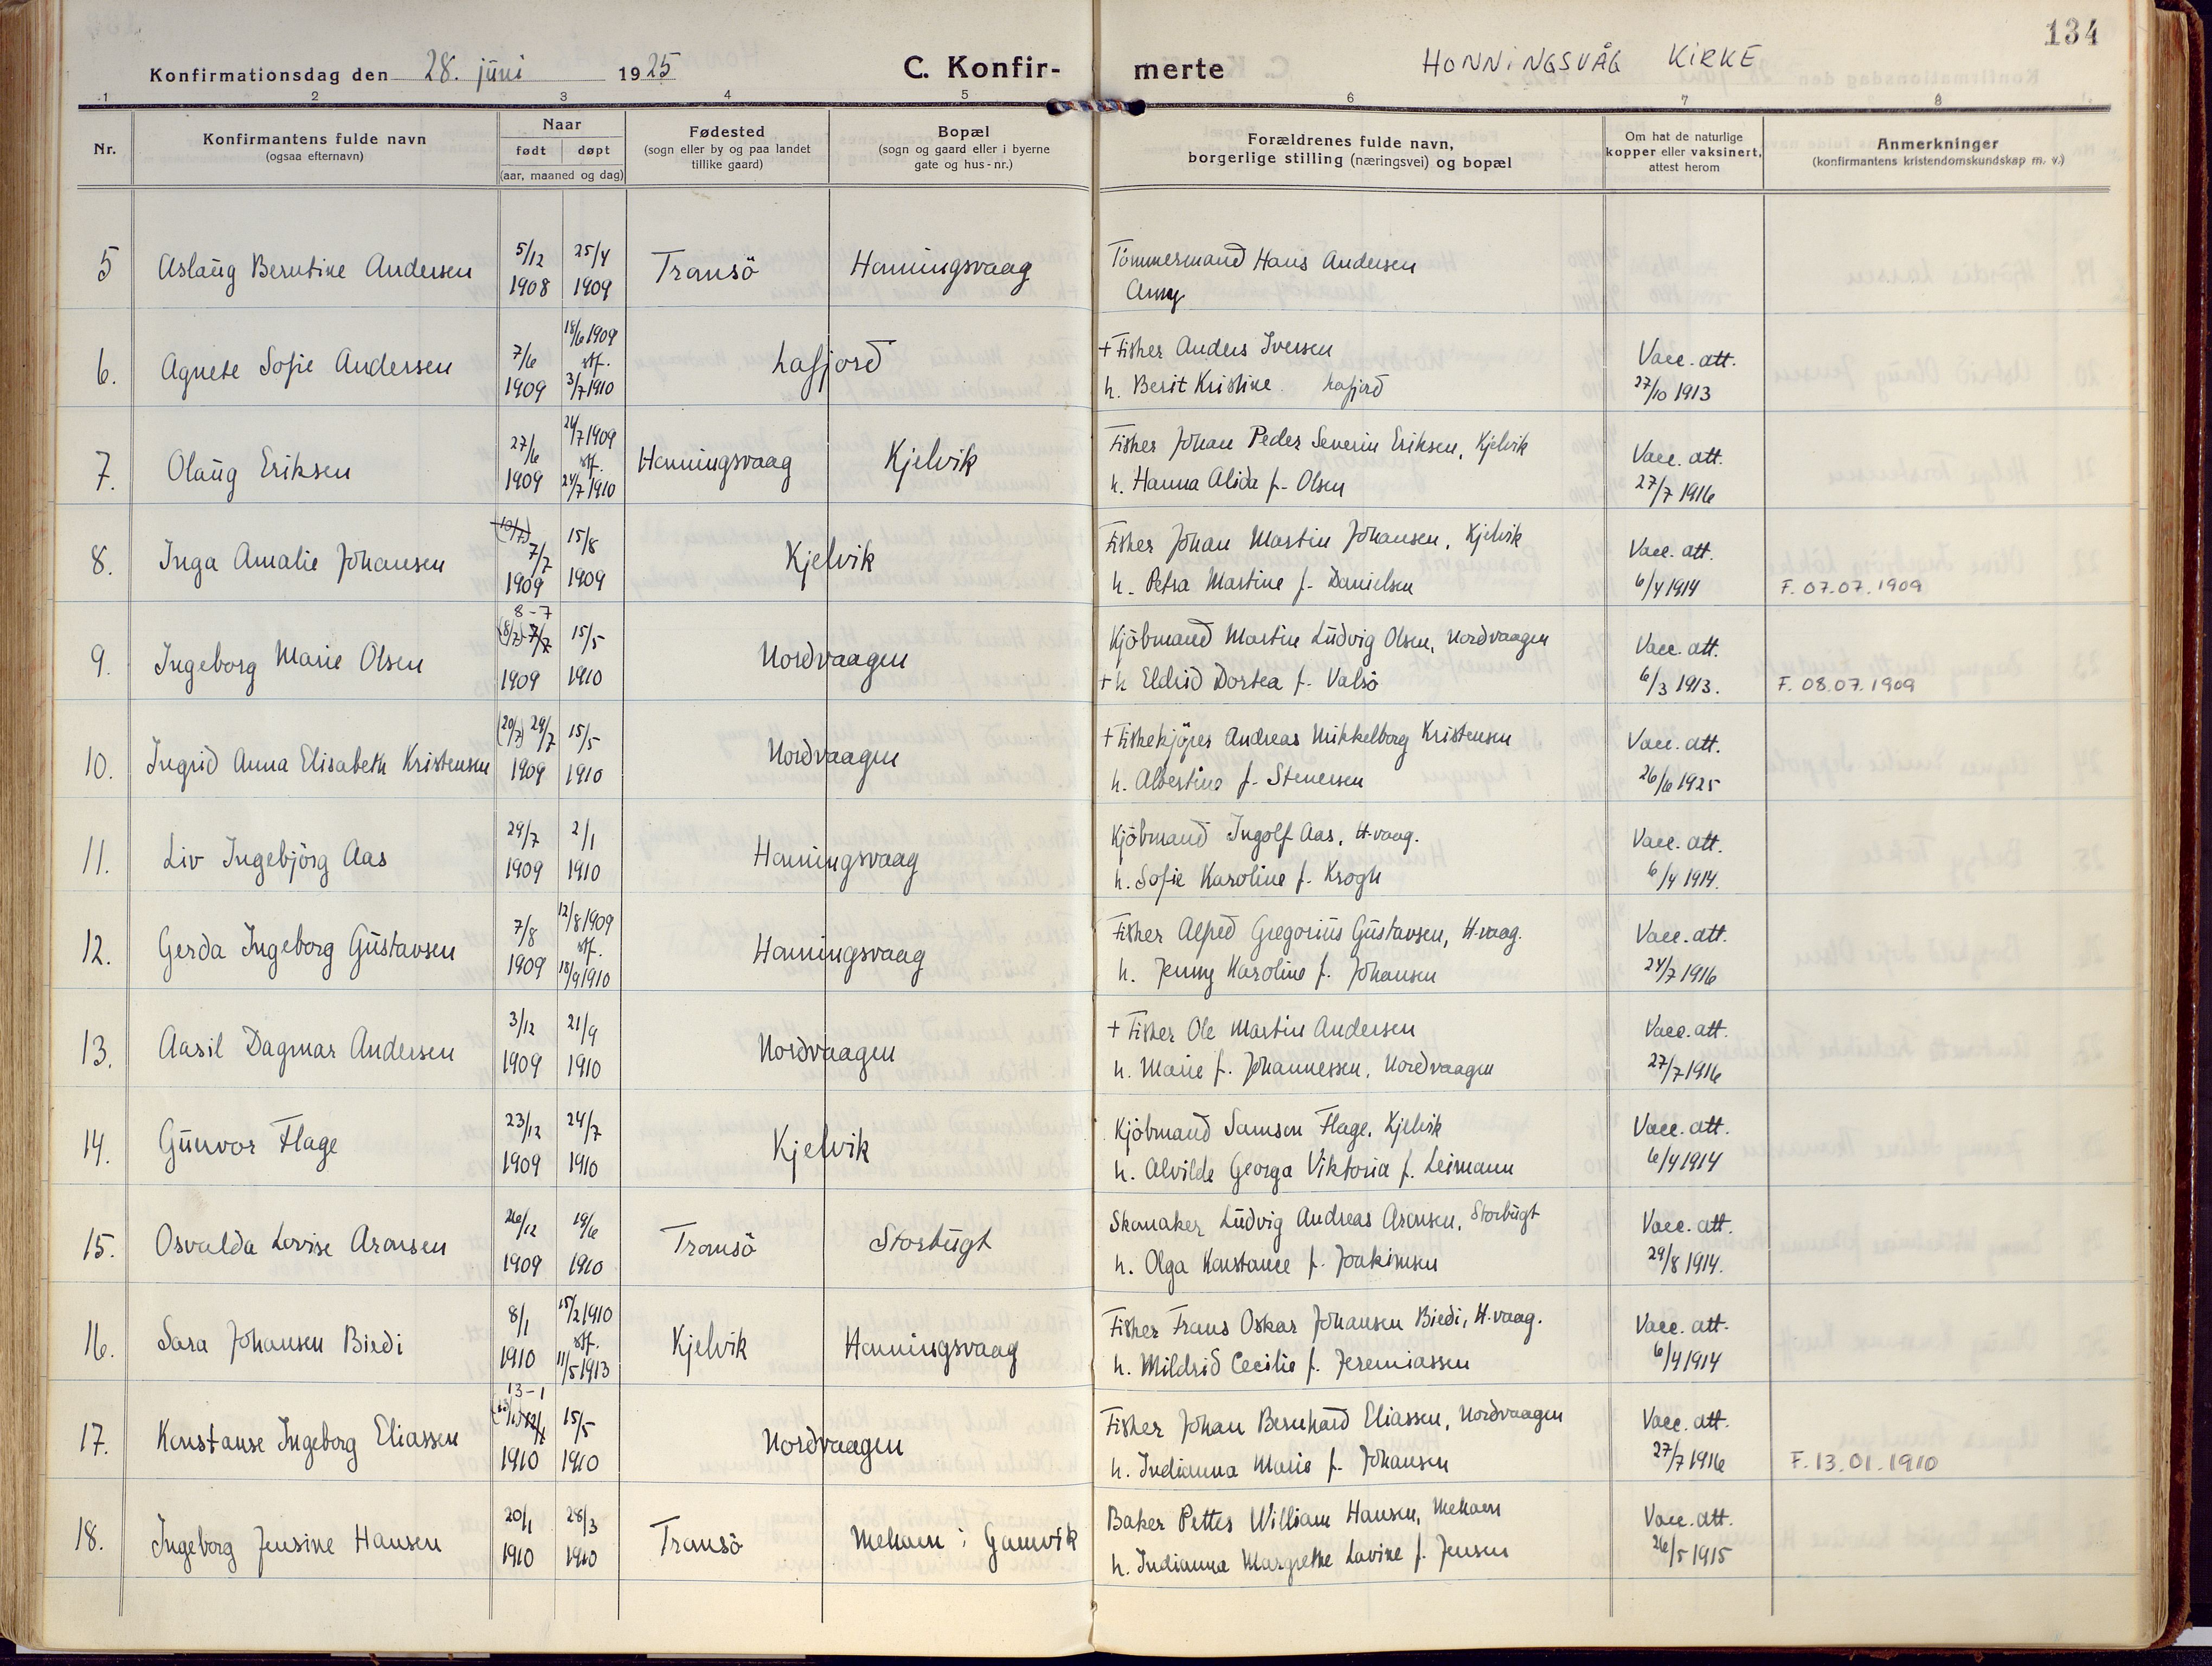 134
Konfirmationsdag den 28. juni 1925
C. Konfir- merte
HONNINGSVÅG KIRKE
1 2 3 4 5 6 7 8
Nr.
Konfirmantens fulde navn
(ogsaa efternavn)
Naar
født døpt
(aar, maaned og dag)
Fødested
(sogn eller by og paa landet
tillike gaard)
Bopæl
(sogn og gaard eller i byerne
gate og hus-nr.)
Forældrenes fulde navn,
borgerlige stilling (næringsvei) og bopæl
Om hat de naturlige
kopper eller vaksinert,
attest herom
Anmerkninger
(konfirmantens kristendomskundskap m. v.)
5 Aslaug Berntine Andersen 5/12 1908 25/4 1909 Tromsö Honningsvaag
Tömmermand Hans Andersen
Anny
6. Agnete Sofie Andersen 7/6 1909 18/6 1909 stf. 3/7 1910 Lafjord
+ Fisker Anders Iversen
h. Berit Kristine. Lafjord
Vacc. att.
27/10 1913
7. Olaug Eriksen 27/6 1909 24/7 1909 stf. 24/7 1910 Honningsvaag Kjelvik
Fisker Johan Peder Severin Eriksen, Kjelvik
h. Hanna Alida f. Olsen
Vacc. att.
27/7 1916
8. Inga Amalie Johansen (10/7) 7/7 1909 15/8 1909 Kjelvik
Fisker Johan Martin Johansen, Kjelvik
h. Petra Martine f. Danielsen
Vacc. att.
6/4 1914
F. 07.07.1909
9. Ingeborg Marie Olsen 8-7 (8/7) 7/7 1909 15/5 1910 Nordvaagen
Kjöbmand Martin Ludvig Olsen, Nordvaagen
+ h Eldrid Dortea f. Valsö
Vacc. att.
6/3 1913.
F. 08.07.1909
10. Ingrid Anna Elisabeth Kristensen (20/7) 29/7 1909 15/5 1910 Nordvaagen
+ Fiskekjöper Andreas Mikkelborg Kristensen
h. Albertine f. Stenersen
Vacc. att.
26/6 1925
11. Liv Ingebjörg Aas 29/7 1909 2/1 1910 Honningsvaag
Kjöbmand Ingolf Aas, H.vaag.
h. Sofie Karoline f. Krogh
Vacc. att.
6/4 1914.
12. Gerda Ingeborg Gustavsen 7/8 1909 12/8 1909 stf. 18/9 1910 Honningsvaag
Fisker Alfred Gregorius Gustavsen, H.vaag.
h. Jenny Karoline f. Johansen
Vacc. att.
24/7 1916
13. Aasil Dagmar Andersen 3/12 1909 21/9 1910 Nordvaagen
+ Fisker Ole Martin Andersen
h. Marie f. Johannessen, Nordvaagen
Vacc. att.
27/7 1916
14. Gunvor Flage 23/12 1909 24/7 1910 Kjelvik
Kjöbmand Samson Flage, Kjelvik
h. Alvilde Georga Viktoria f. Leimann
Vacc. att.
6/4 1914
15. Osvalda Lovise Aronsen 26/12 1909 19/6 1910 Tromsö Storbugt
Skomaker Ludvig Andreas Aronsen, Storbugt
h. Olga Konstance f. Joakimsen
Vacc. att.
29/8 1914.
16. Sara Johansen Biedi 8/1 1910 15/2 1910 stf. 11/5 1913 Kjelvik Honningsvaag
Fisker Frans Oskar Johansen Biedi, H.vaag.
h. Mildrid Cecilie f. Jeremiassen
Vacc. att.
6/4 1914
17. Konstanse Ingeborg Eliassen 13-1 1910 15/5 1910 Nordvaagen
Fisker Johan Bernhard Eliassen, Nordvaagen
h. Indianna Marie f. Johansen
Vacc. att.
27/7 1916
F. 13.01.1910
18. Ingeborg Jensine Hansen 20/1 1910 28/3 1910 Tromsö Mehamn i Gamvik
Baker Petter William Hansen, Mehamn
h. Indianna Margrethe Lovine f. Jensen
Vacc. att.
26/5 1915